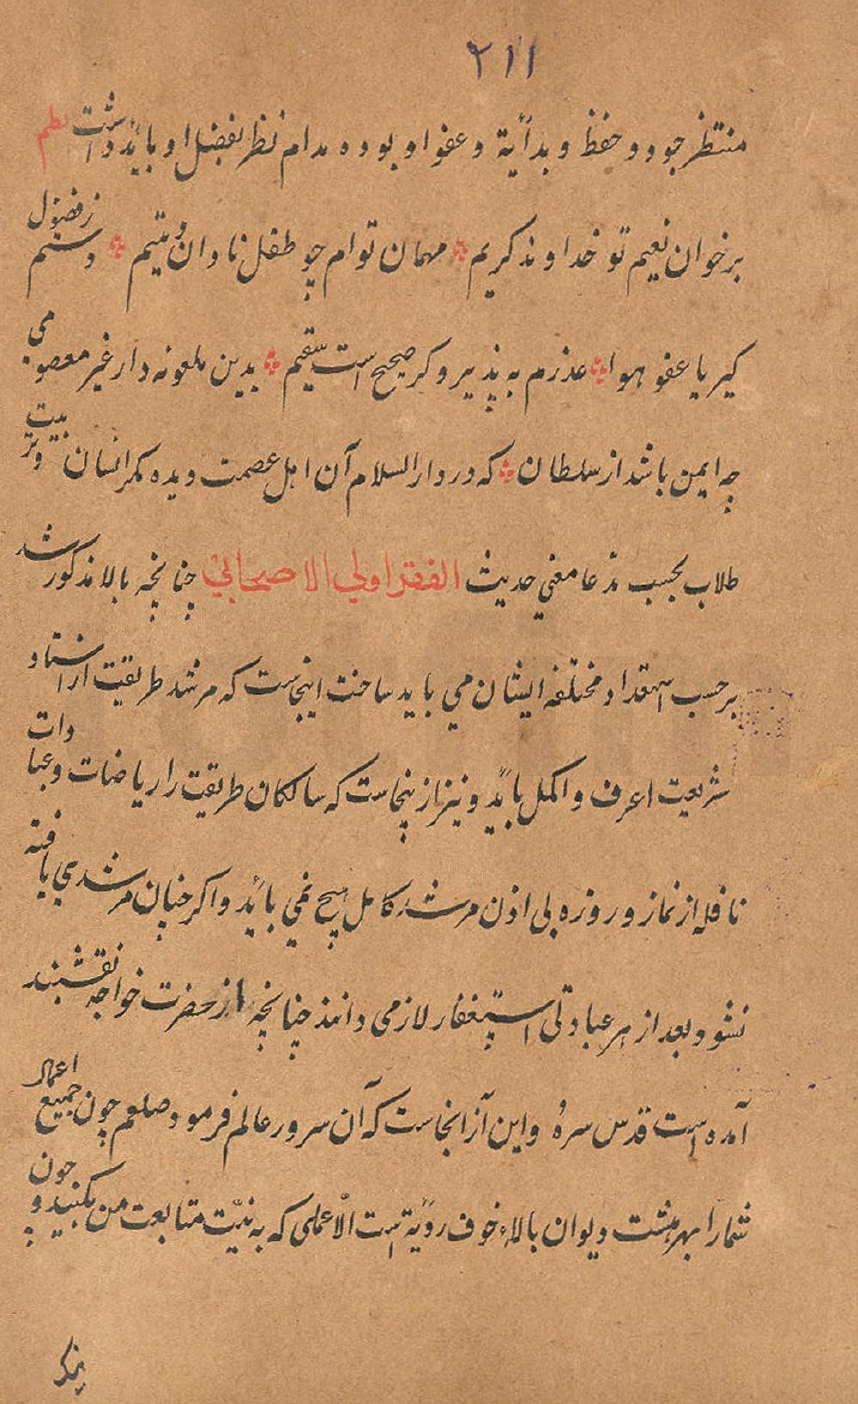 ۲۱۱
منتظر جود و حفظ و بدأیة و عفو او بوده مدام نظر بفضل او بایٔد داشت نظم
بر خوان نعیم تو خداوند کریم مهمان توام چو طفل نادان و یتیم دستم ز فضول
گیر یا عفو هوا عذرم به پذیر و کر صحیح است سقیم بدین ملعونه دار غیر معصومی
چه ایمن باشد از سلطان که در دار السلام آن اهل عصمت دیده کمر انسان وتربیت
طلاب بحسب مدعا معنی حدیث الفقر اولی الا صحابی چنانچه بالا مذکور شد
بر حسب استعداد مختلفه ایشان می باید ساخت اینجاست که مرشد طریقت از استاد
شریعت اعرف و اکمل بایٔد و نیز ازینجاست که سالکان طریقت را ریاضات و عبادات
نافله از نماز و روزه بی اذن مرشد کامل هیچ نمی بایٔد و اکر چنان مرشدی یافته
نشود بعد از هر عبادتی استغفار لازمی دانند چنانچه از حضرت خواجه نقشبند
آمده است قدس سره و این از انجاست که آن سرور عالم فرمود صلعم چون جمیع اعمال
شمارا بهر هشت دیوان بالاء خوف رؤیة است الّا عملی که به نیّت متابعت من بکنید و چون